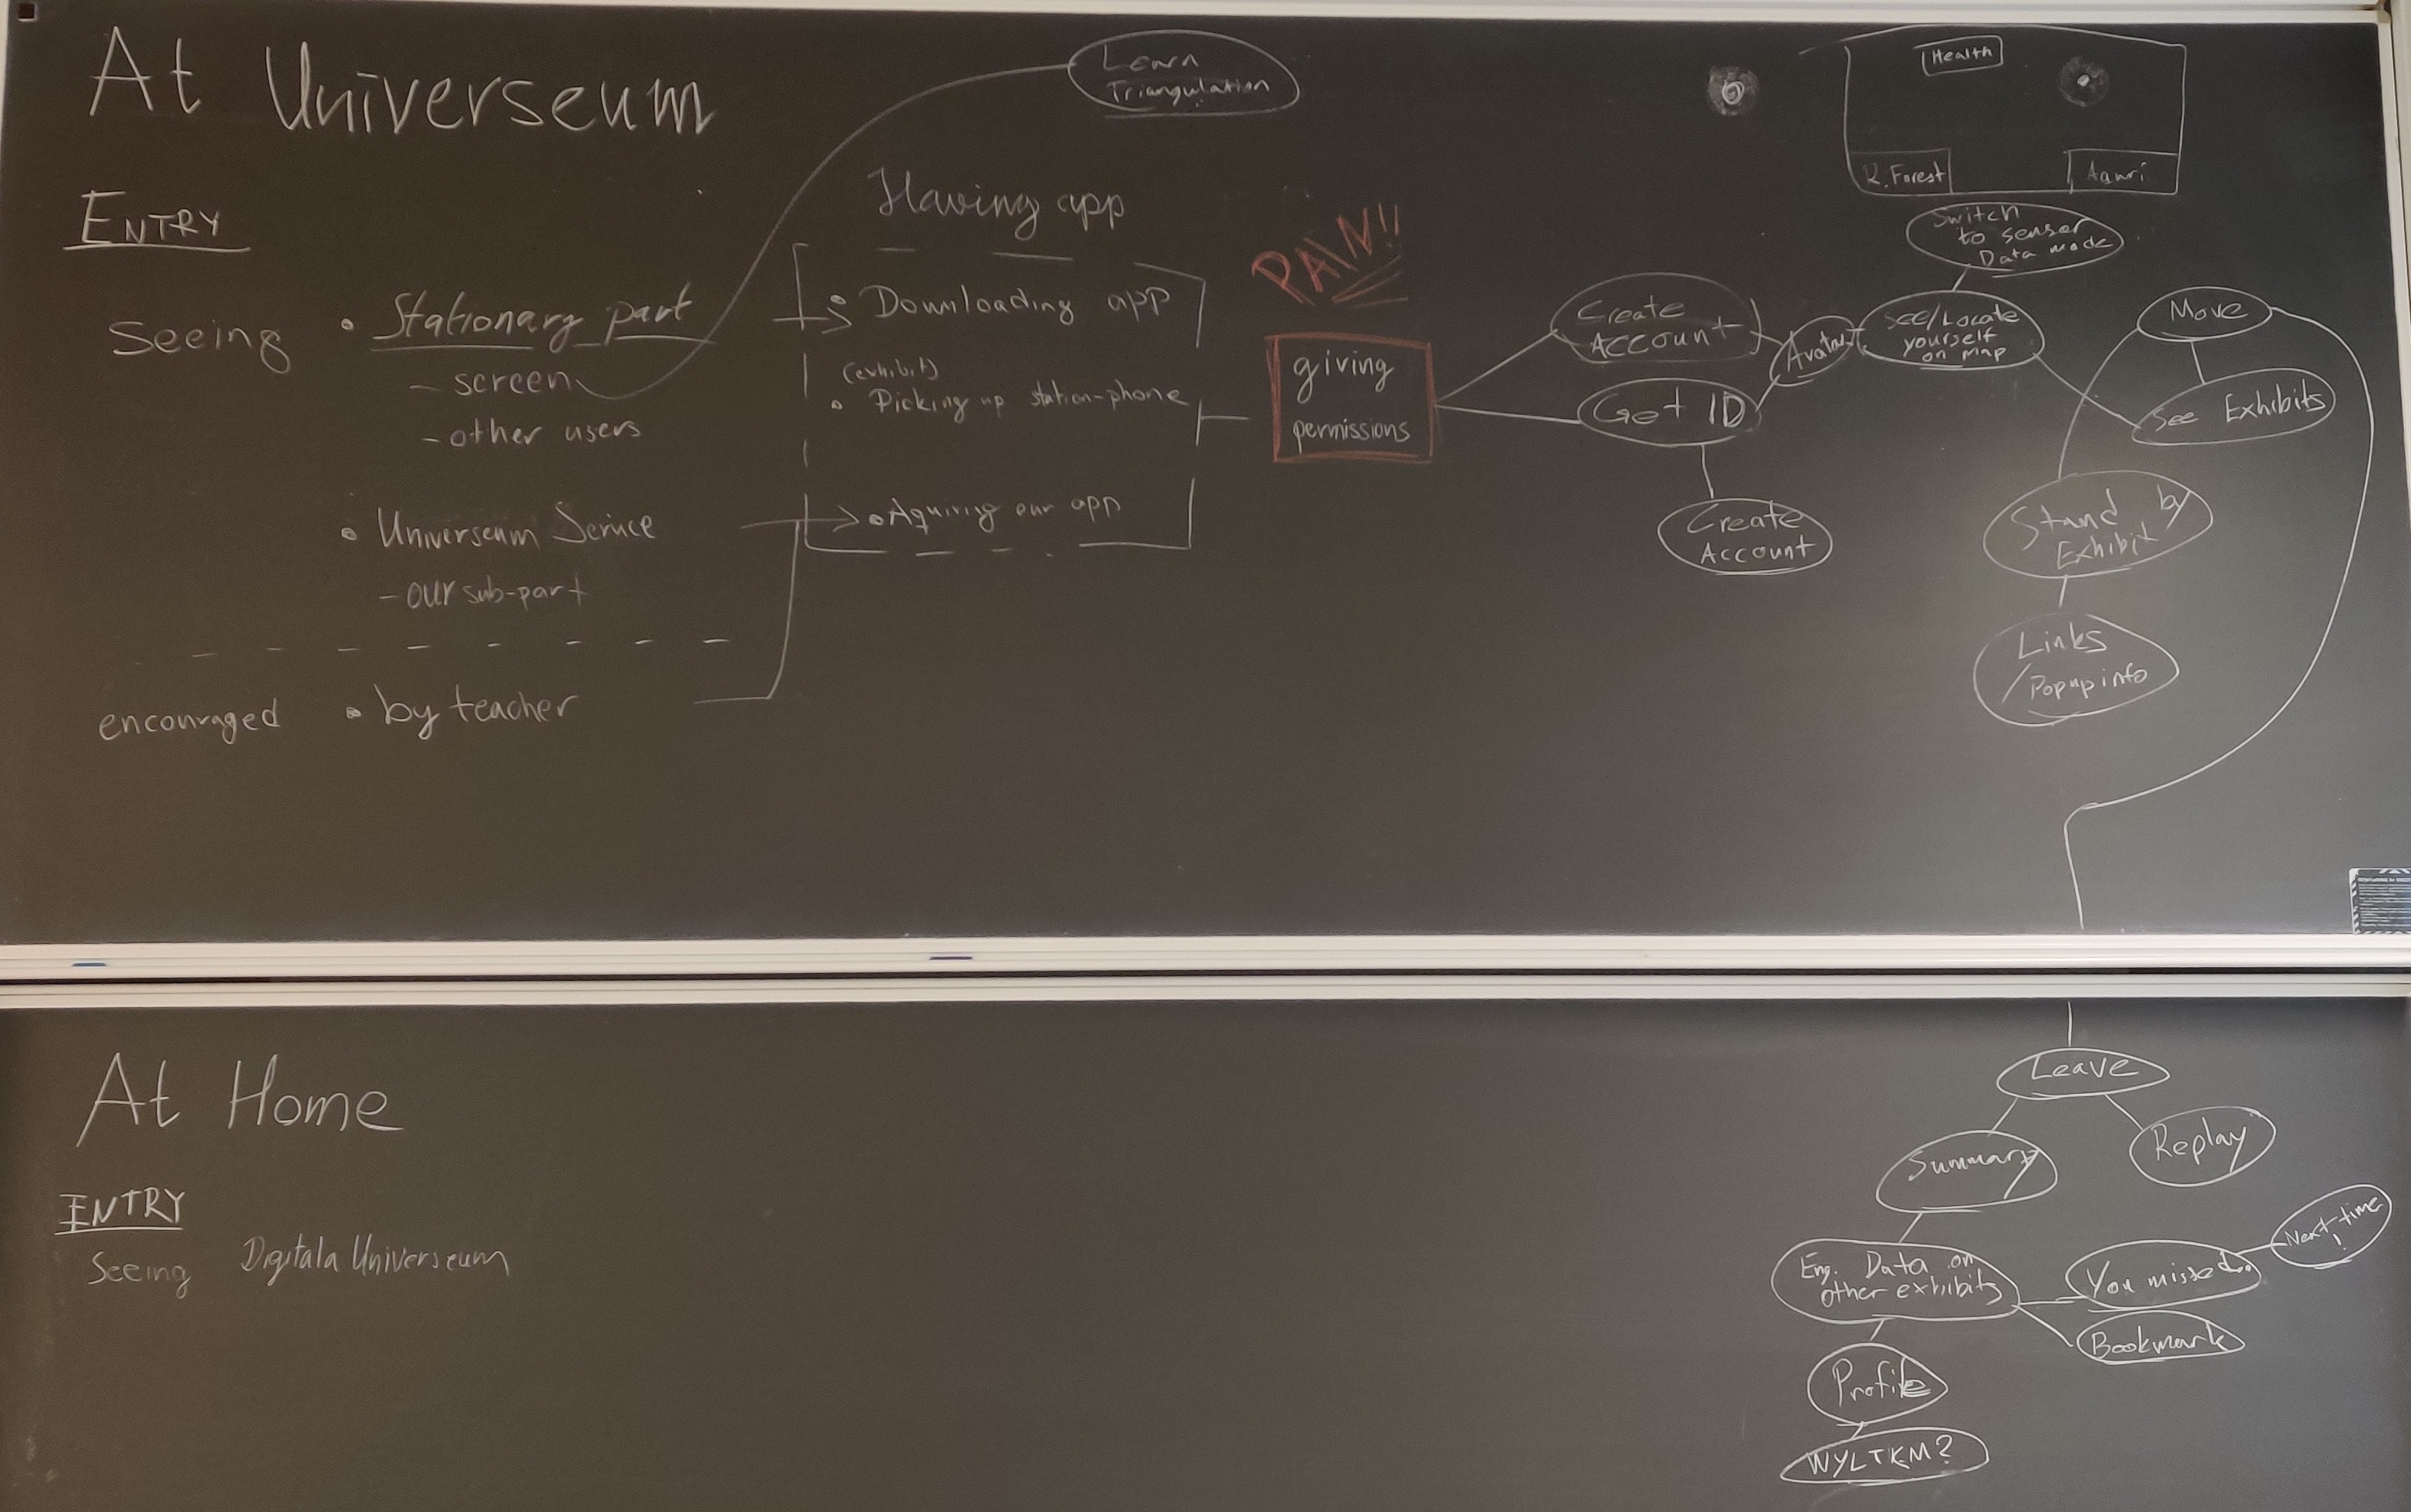 At Universeum
ENTRY
Seeing
• Stationary part
- screen
- other users
• Universeum Service
- our sub-part
encouraged • by teacher
Learn
Triangulation
Having app
• Downloading app
(exhibit)
• Picking up station-phone
• Aquiring our app
PAIN!!
giving
permissions
Create
Account
Get ID
Create
Account
Avatar
See/Locate
yourself
on map
Switch
to sensor
Data mode
Health
R. Forest
Aqwri
Move
See Exhibits
Stand by
Exhibit
Links
/Popup info
At Home
ENTRY
Seeing Digitala Universeum
Leave
Summary
Replay
Eng. Data on
other exhibits
You missed...
Next time
!
Bookmark
Profile
WYLTKM?